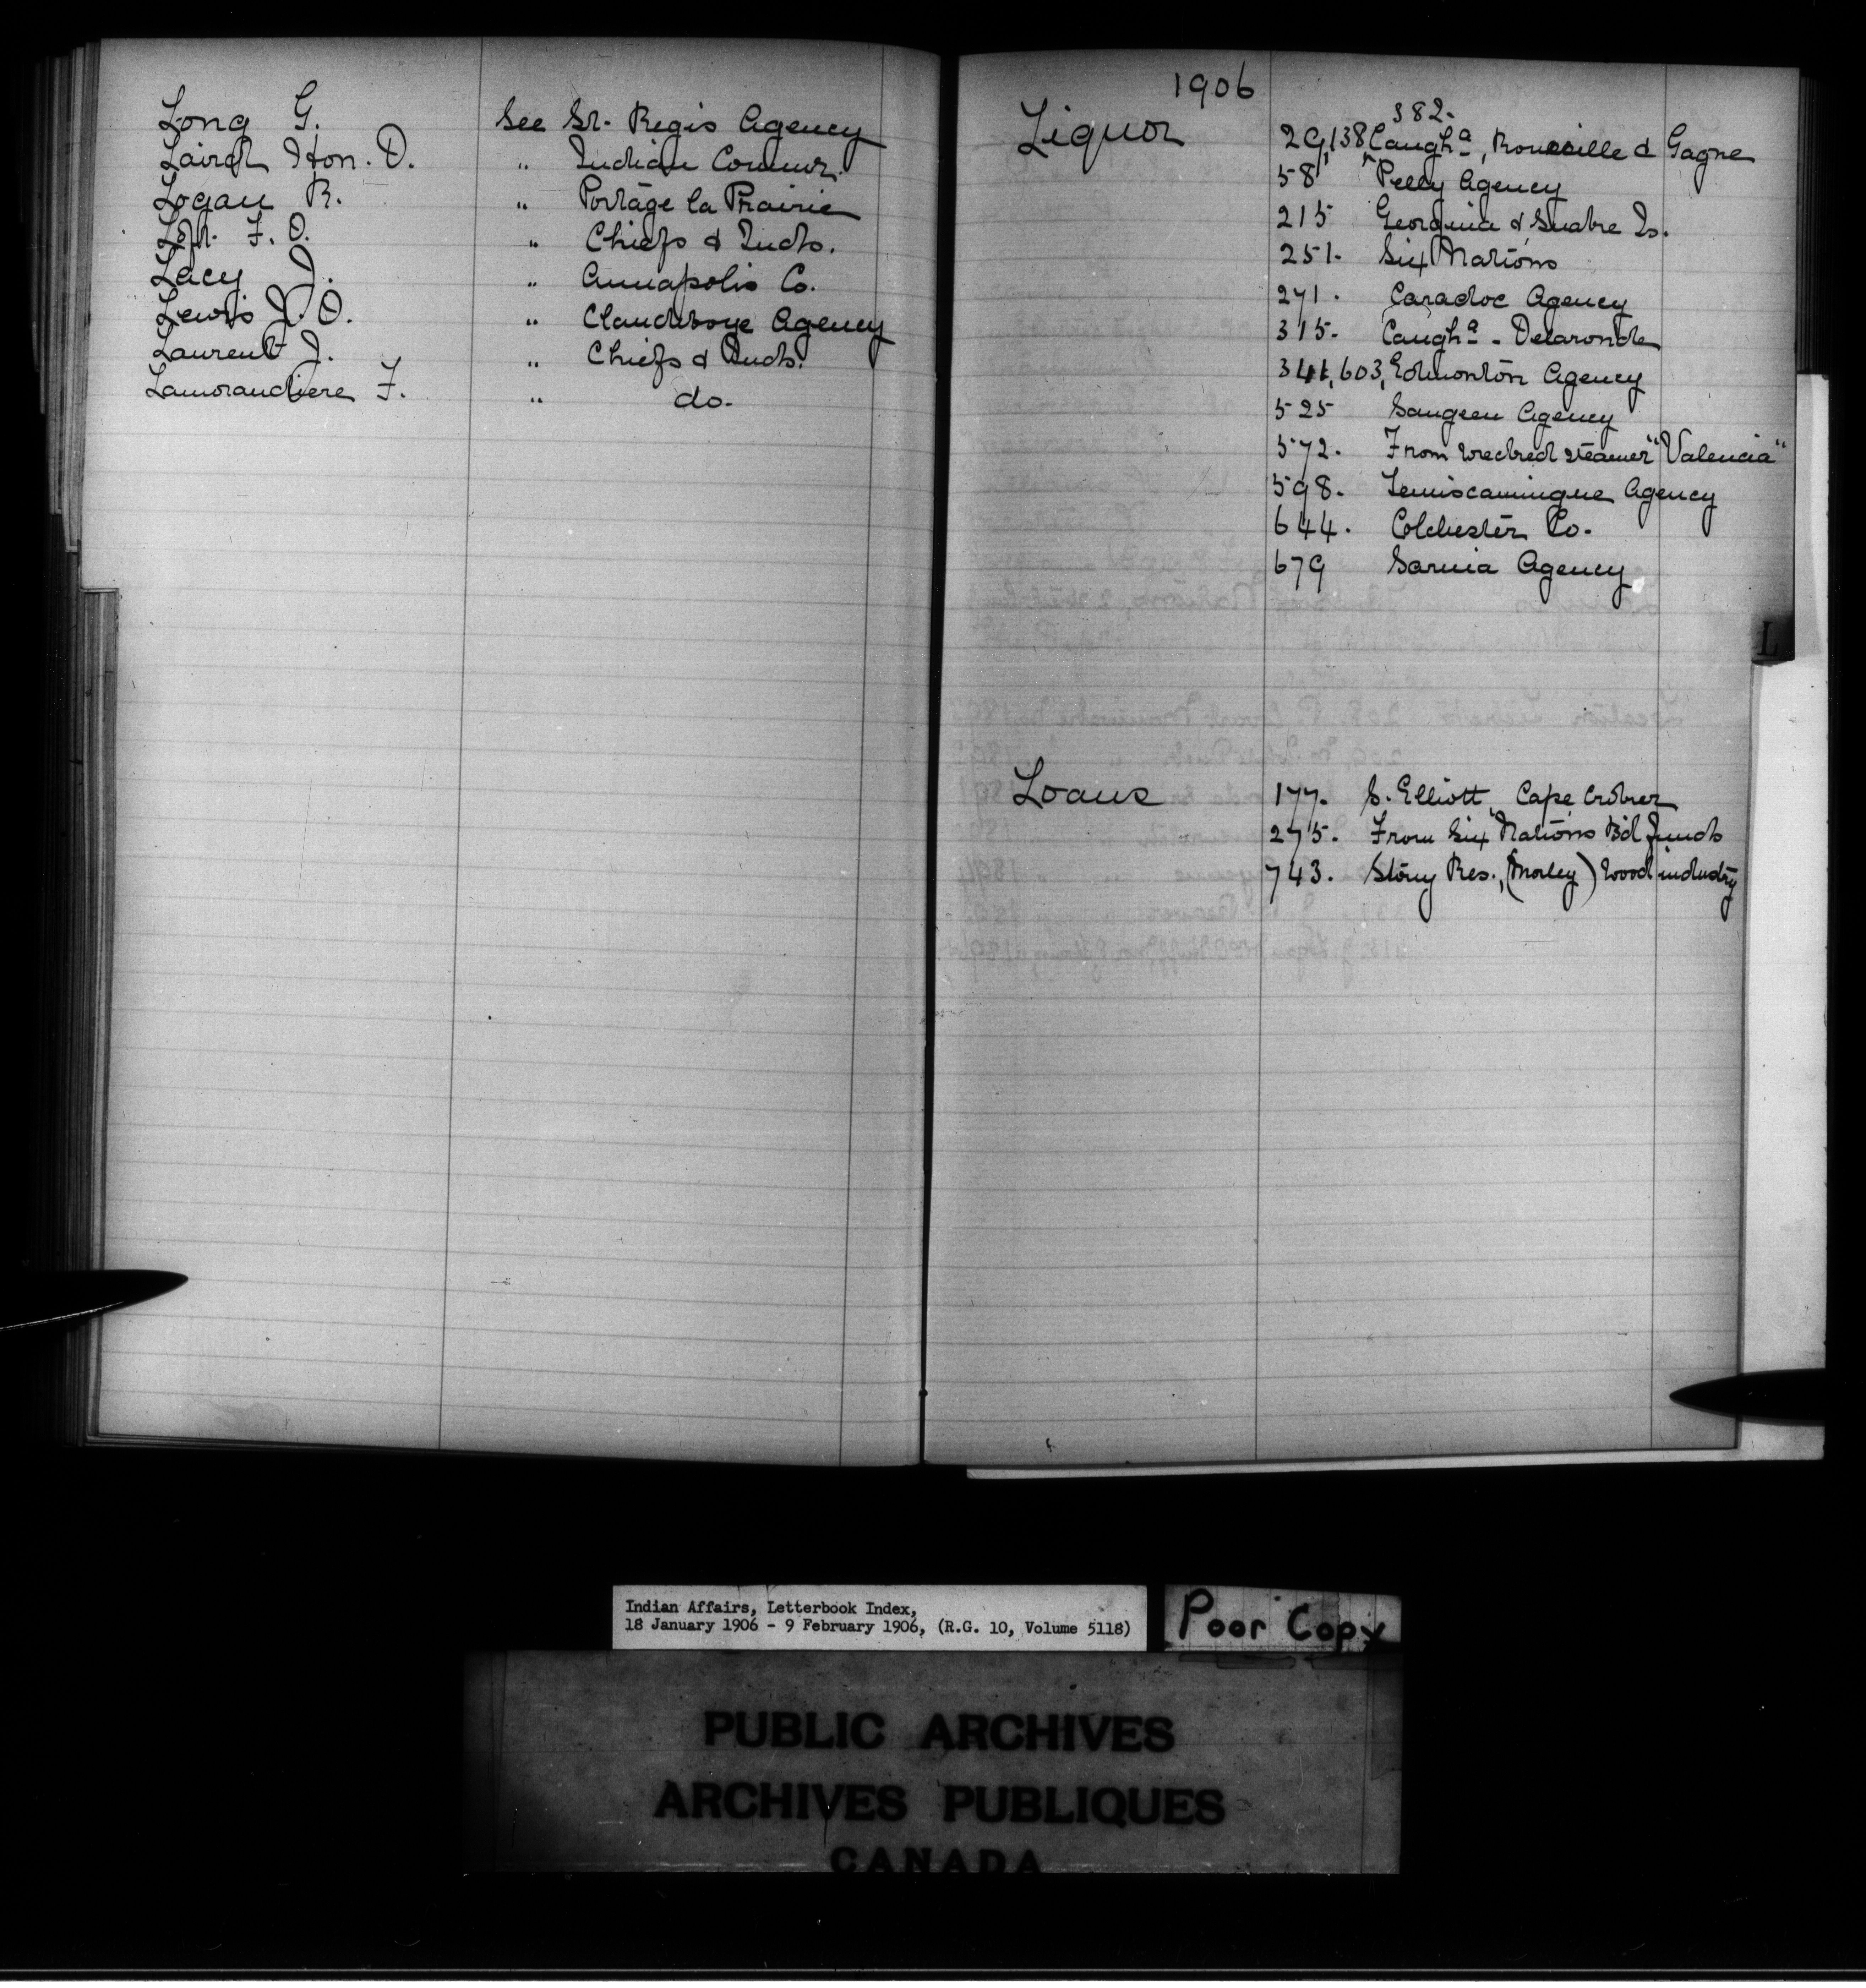 Long G. See St. Regis Agency
Laird Hon. D. " Indian Commr.
Logan R. " Portage la Prairie
Loft F. O. " Chiefs & Inds.
Lacy J. " Annapolis Co.
Lewis J. O. " Clandeboye Agency
Laurent J. " Chiefs & Inds.
Lamorandiere F. " do.
1906
Liquor
382.
29,138, Caugha, & Gagne
58 Pelly Agency
215 Georgina & Snake Is.
251. Six Nations
271. Caradoc Agency
315. Caugha - Delaronde
341, 603, Edmonton Agency
525 Saugeen Agency
572. From wrecked steamer "Valencia"
598. Temiscamingue Agency
644. Colchester Co.
679 Sarnia Agency
L
Loans
177. S. Elliott, Cape Croker
275. From Six Nations Bd funds
743. Stony Res., (Morley) wood industry
Indian Affairs, Letterbook Index,
18 January 1906 - 9 February 1906, (R.G. 10, Volume 5118)
Poor Copy
PUBLIC ARCHIVES
ARCHIVES PUBLIQUES
CANADA